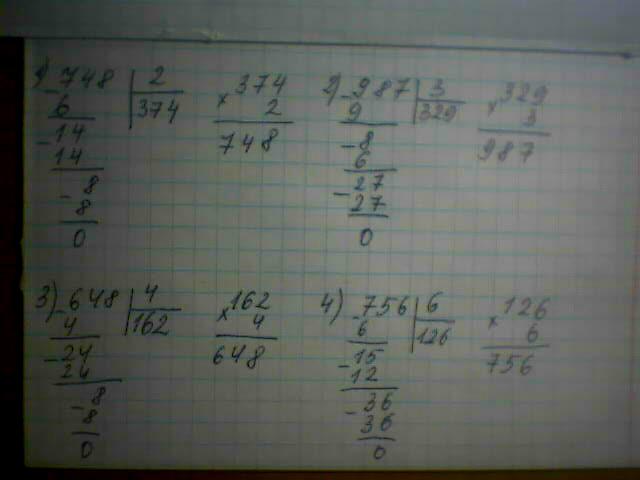 1) - 748 | 2
6 | 374
- 14
14
- 8
8
0
× 374
2
748
2) - 987 | 3
9 | 329
- 8
6
- 27
27
0
× 329
3
987
3) - 648 | 4
4 | 162
- 24
24
- 8
8
0
× 162
4
648
4) - 756 | 6
6 | 126
- 15
12
- 36
36
0
× 126
6
756